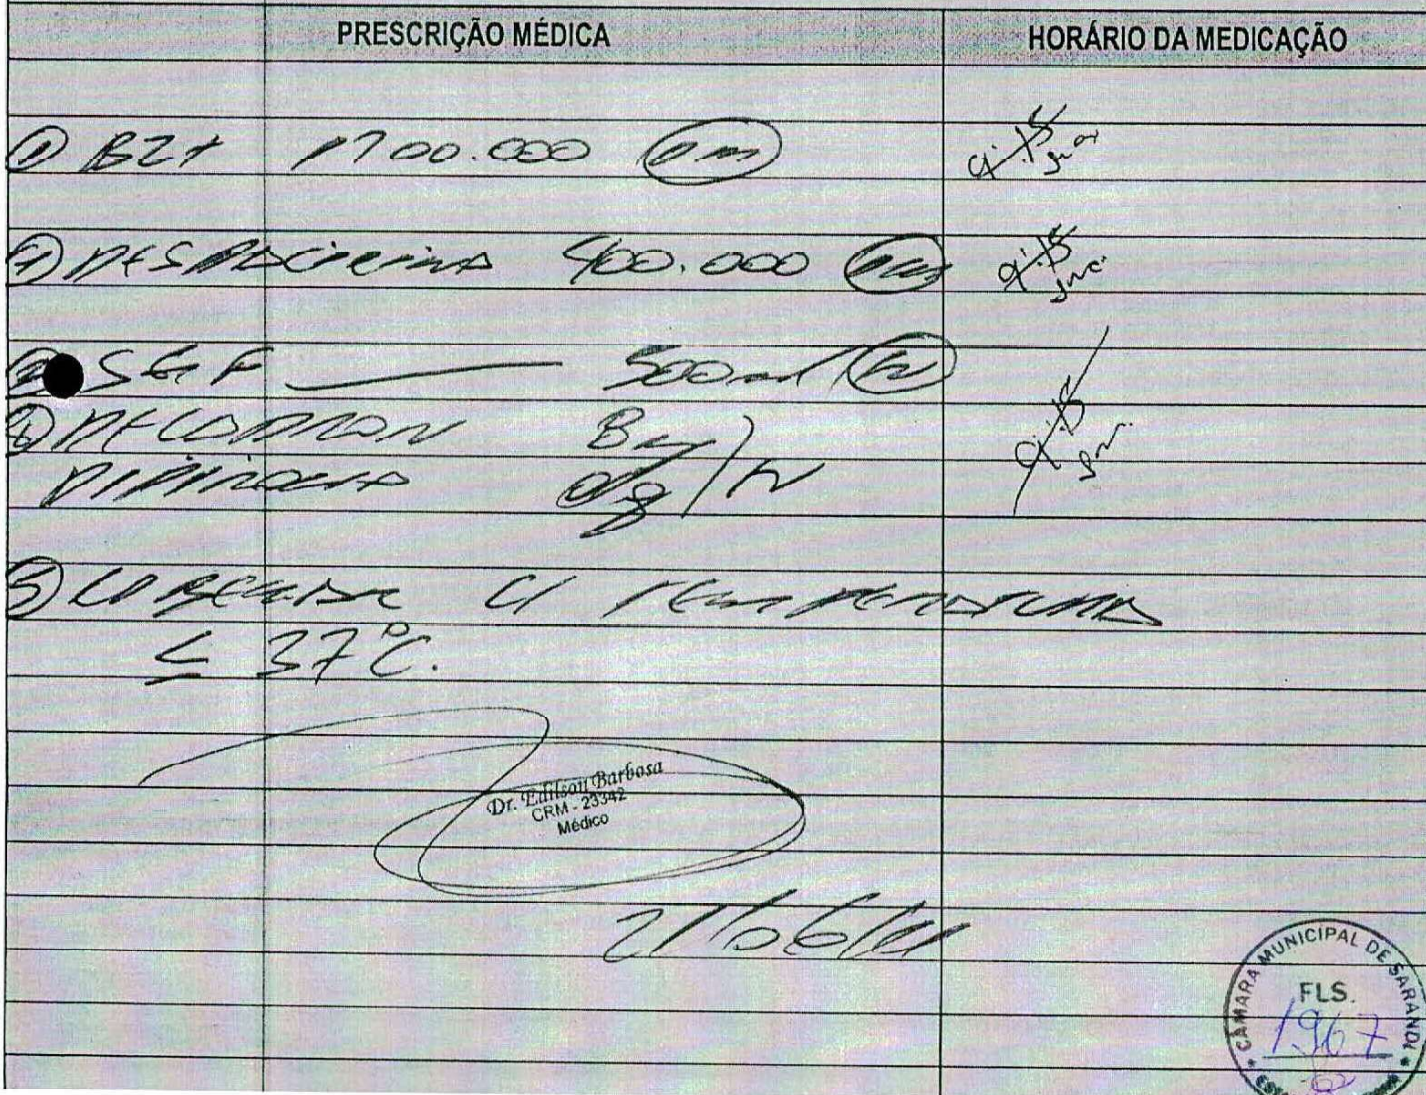 PRESCRIÇÃO MÉDICA
HORÁRIO DA MEDICAÇÃO
① BZT 1200.000 im
9:15
② DESPACILINA 400.000 im
9:15
SGF 500ml EV
④ DECADRON
DIPIRONA
EV
9:15
⑤ LIBERAR C/ TEMPERATURA
≤ 37°C.
Dr. Edilson Barbosa
CRM - 23342
Médico
21/06/11
CÂMARA MUNICIPAL DE SARANDI
FLS.
1967